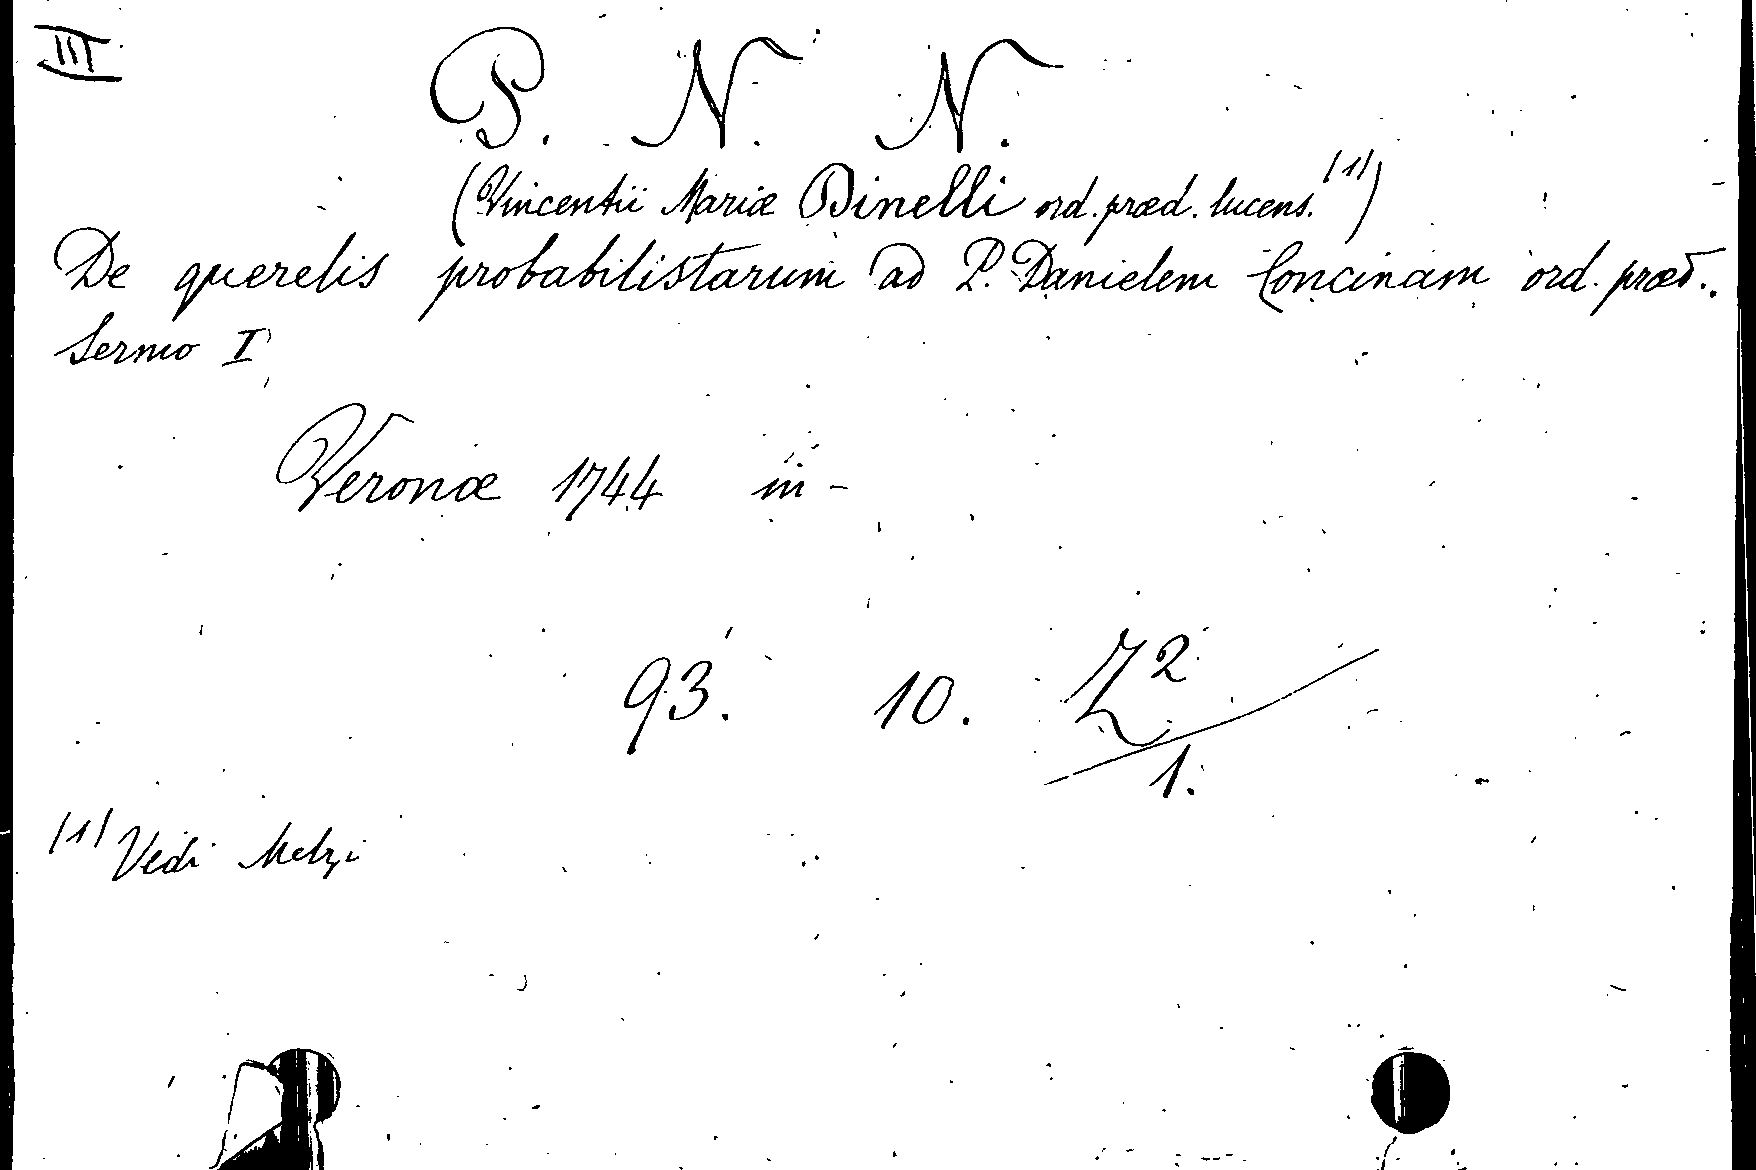 III
P. N. N.
(Vincentii Mariæ Dinelli ord. præd. lucens. (1))
De querelis probabilistarum ad P. Danielem Concinam ord. præd..
Sermo I
Veronæ 1744 in -
93. 10. Z 2
1.
(1) Vedi Melzi